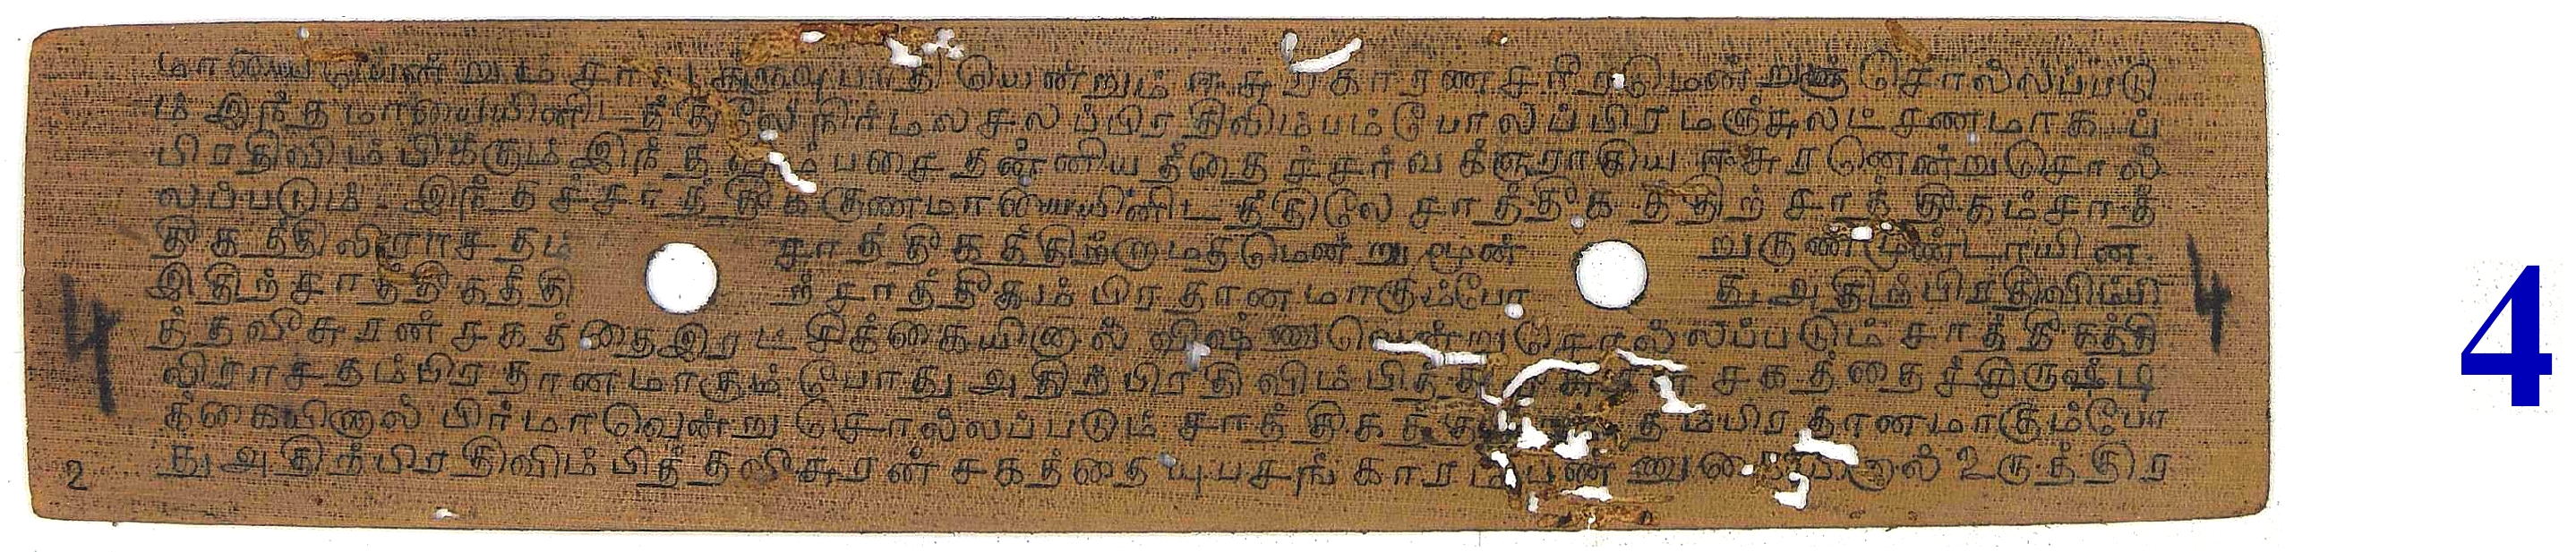 மாயையென்றும் சா யென்றும் ஈசுரகாரணசரீரமென்றுஞ் சொல்லப்படு
ம் இந்த மாயையினிடத்திலே நிர்மலசலப்பிரதிவிம்பம்போலப்பிரமஞ்சுலட்சணமாகப்
பிரதிவிம்பிக்கும் இந்த தன்னியத்தைச்சர்வக்ஞராகிய ஈசுரனென்று சொல்
லப்படும் இந்தச்சாத்திககுணமாயையினிடத்திலே சாத்திகத்திற் சாத்திகம் சாத்
திகத்திலிராசதம் சாத்திகத்திற்றாமதமென்று மூன் றுகுணமுண்டாயின
இதிற் சாத்திகத்தி ற் சாத்திகம் பிரதானமாகும்போ து அதிற் பிரதிவிம்பி
த்தவீசுரன் சகத்தை இரட்சிக்கையினால் விஷ்ணுவென்று சொல்லப்படும் சாத்திகத்தி
லிராசதம் பிரதானமாகும்போது அதிற் பிரதிவிம்பித்த சகத்தைச்சிருஷ்டி
க்கையினால் பிர்மாவென்று சொல்லப்படும் சாத்திகத் தம்பிரதானமாகும்போ
து அதிற் பிரதிவிம்பித்தவீசுரன் சகத்தையுபசங்காரம் பண்ணு உருத்திர
2
4
4
4